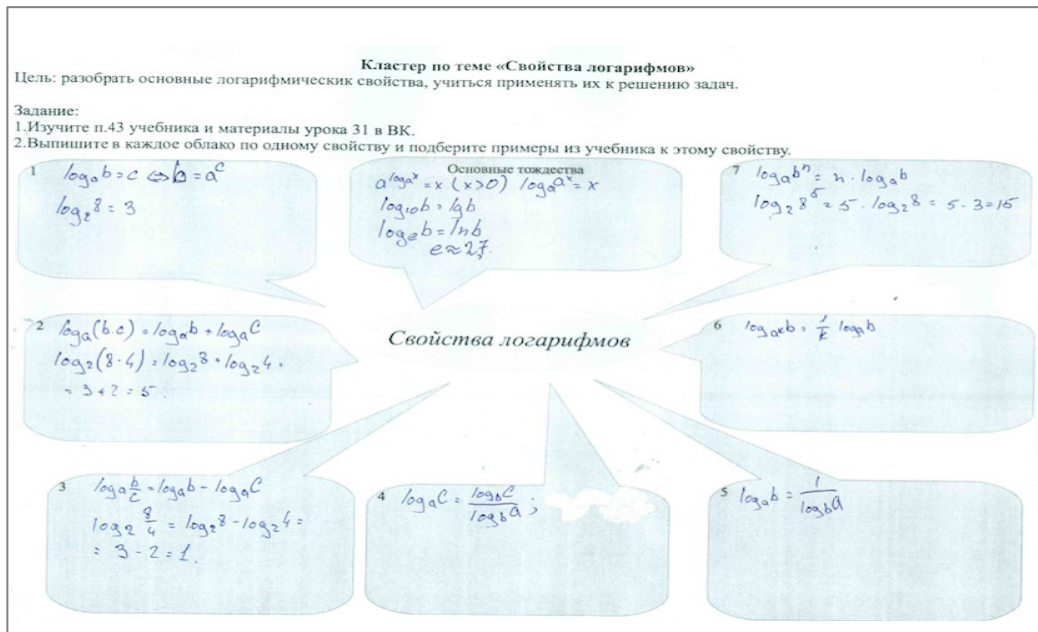 Кластер по теме «Свойства логарифмов»
Цель: разобрать основные логарифмическик свойства, учиться применять их к решению задач.
Задание:
1.Изучите п.43 учебника и материалы урока 31 в ВК.
2.Выпишите в каждое облако по одному свойству и подберите примеры из учебника к этому свойству.
1
logₐb = c ⇔ b = a^c
log₂8 = 3
Основные тождества
a^(logₐx) = x (x>0) logₐa^x = x
log₁₀b = lgb
logₑb = lnb
e ≈ 2,7.
7
logₐb^n = n · logₐb
log₂8^5 = 5 · log₂8 = 5 · 3 = 15
2
logₐ(b·c) = logₐb + logₐC
log₂(8·4) = log₂8 + log₂4 =
= 3 + 2 = 5
Свойства логарифмов
6
log_(a^k)b = 1/k logₐb
3
logₐ b/c = logₐb - logₐC
log₂ 8/4 = log₂8 - log₂4 =
= 3 - 2 = 1.
4
logₐC = log_b C / log_b a ;
5
logₐb = 1 / log_b a